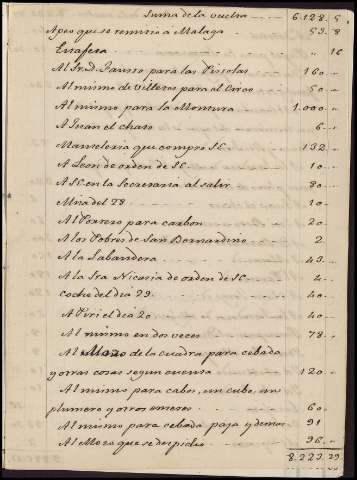 Suma de la vuelta 6.128. 5
Apeo que se remitio a Malaga 53. 8
Estafeta " 16
Al Sr. D. Fausto para las Pistolas 160
Al mismo de villetes para el Circo 50
Al mismo para la Montura 1.000
A Juan el chato 6
Manteleria que compro SE 132
A Leon de orden de SE 10
A SE en la Secretaria al salir 80
Mria del 28 10
Al Portero para carbon 20
A los Pobres de San Bernardino 2
A la Labandera 43
A la Sra Nicasia de orden de SE 4
Coche del dia 29 40
A Piri el dia 20 40
Al mismo en dos veces 78
Al Mozo de la cuadra para cebada
y otras cosas segun cuenta 120
Al mismo para cabos, un cubo, un
plumero y otros enseres 60
Al mismo para cebada paja y demas 91
Al Mozo que se despidio 96
8.223. 29